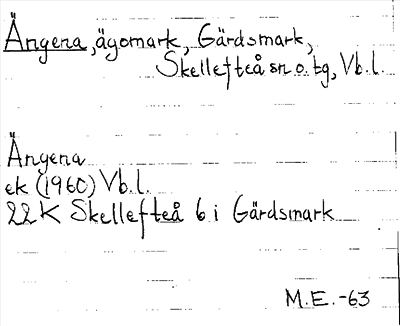 Ängena, ägomark, Gärdsmark,
Skellefteå sn o. tg, Vb. l.
Ängena
ek (1960) Vb. l.
22K Skellefteå 6 i Gärdsmark
M.E. -63